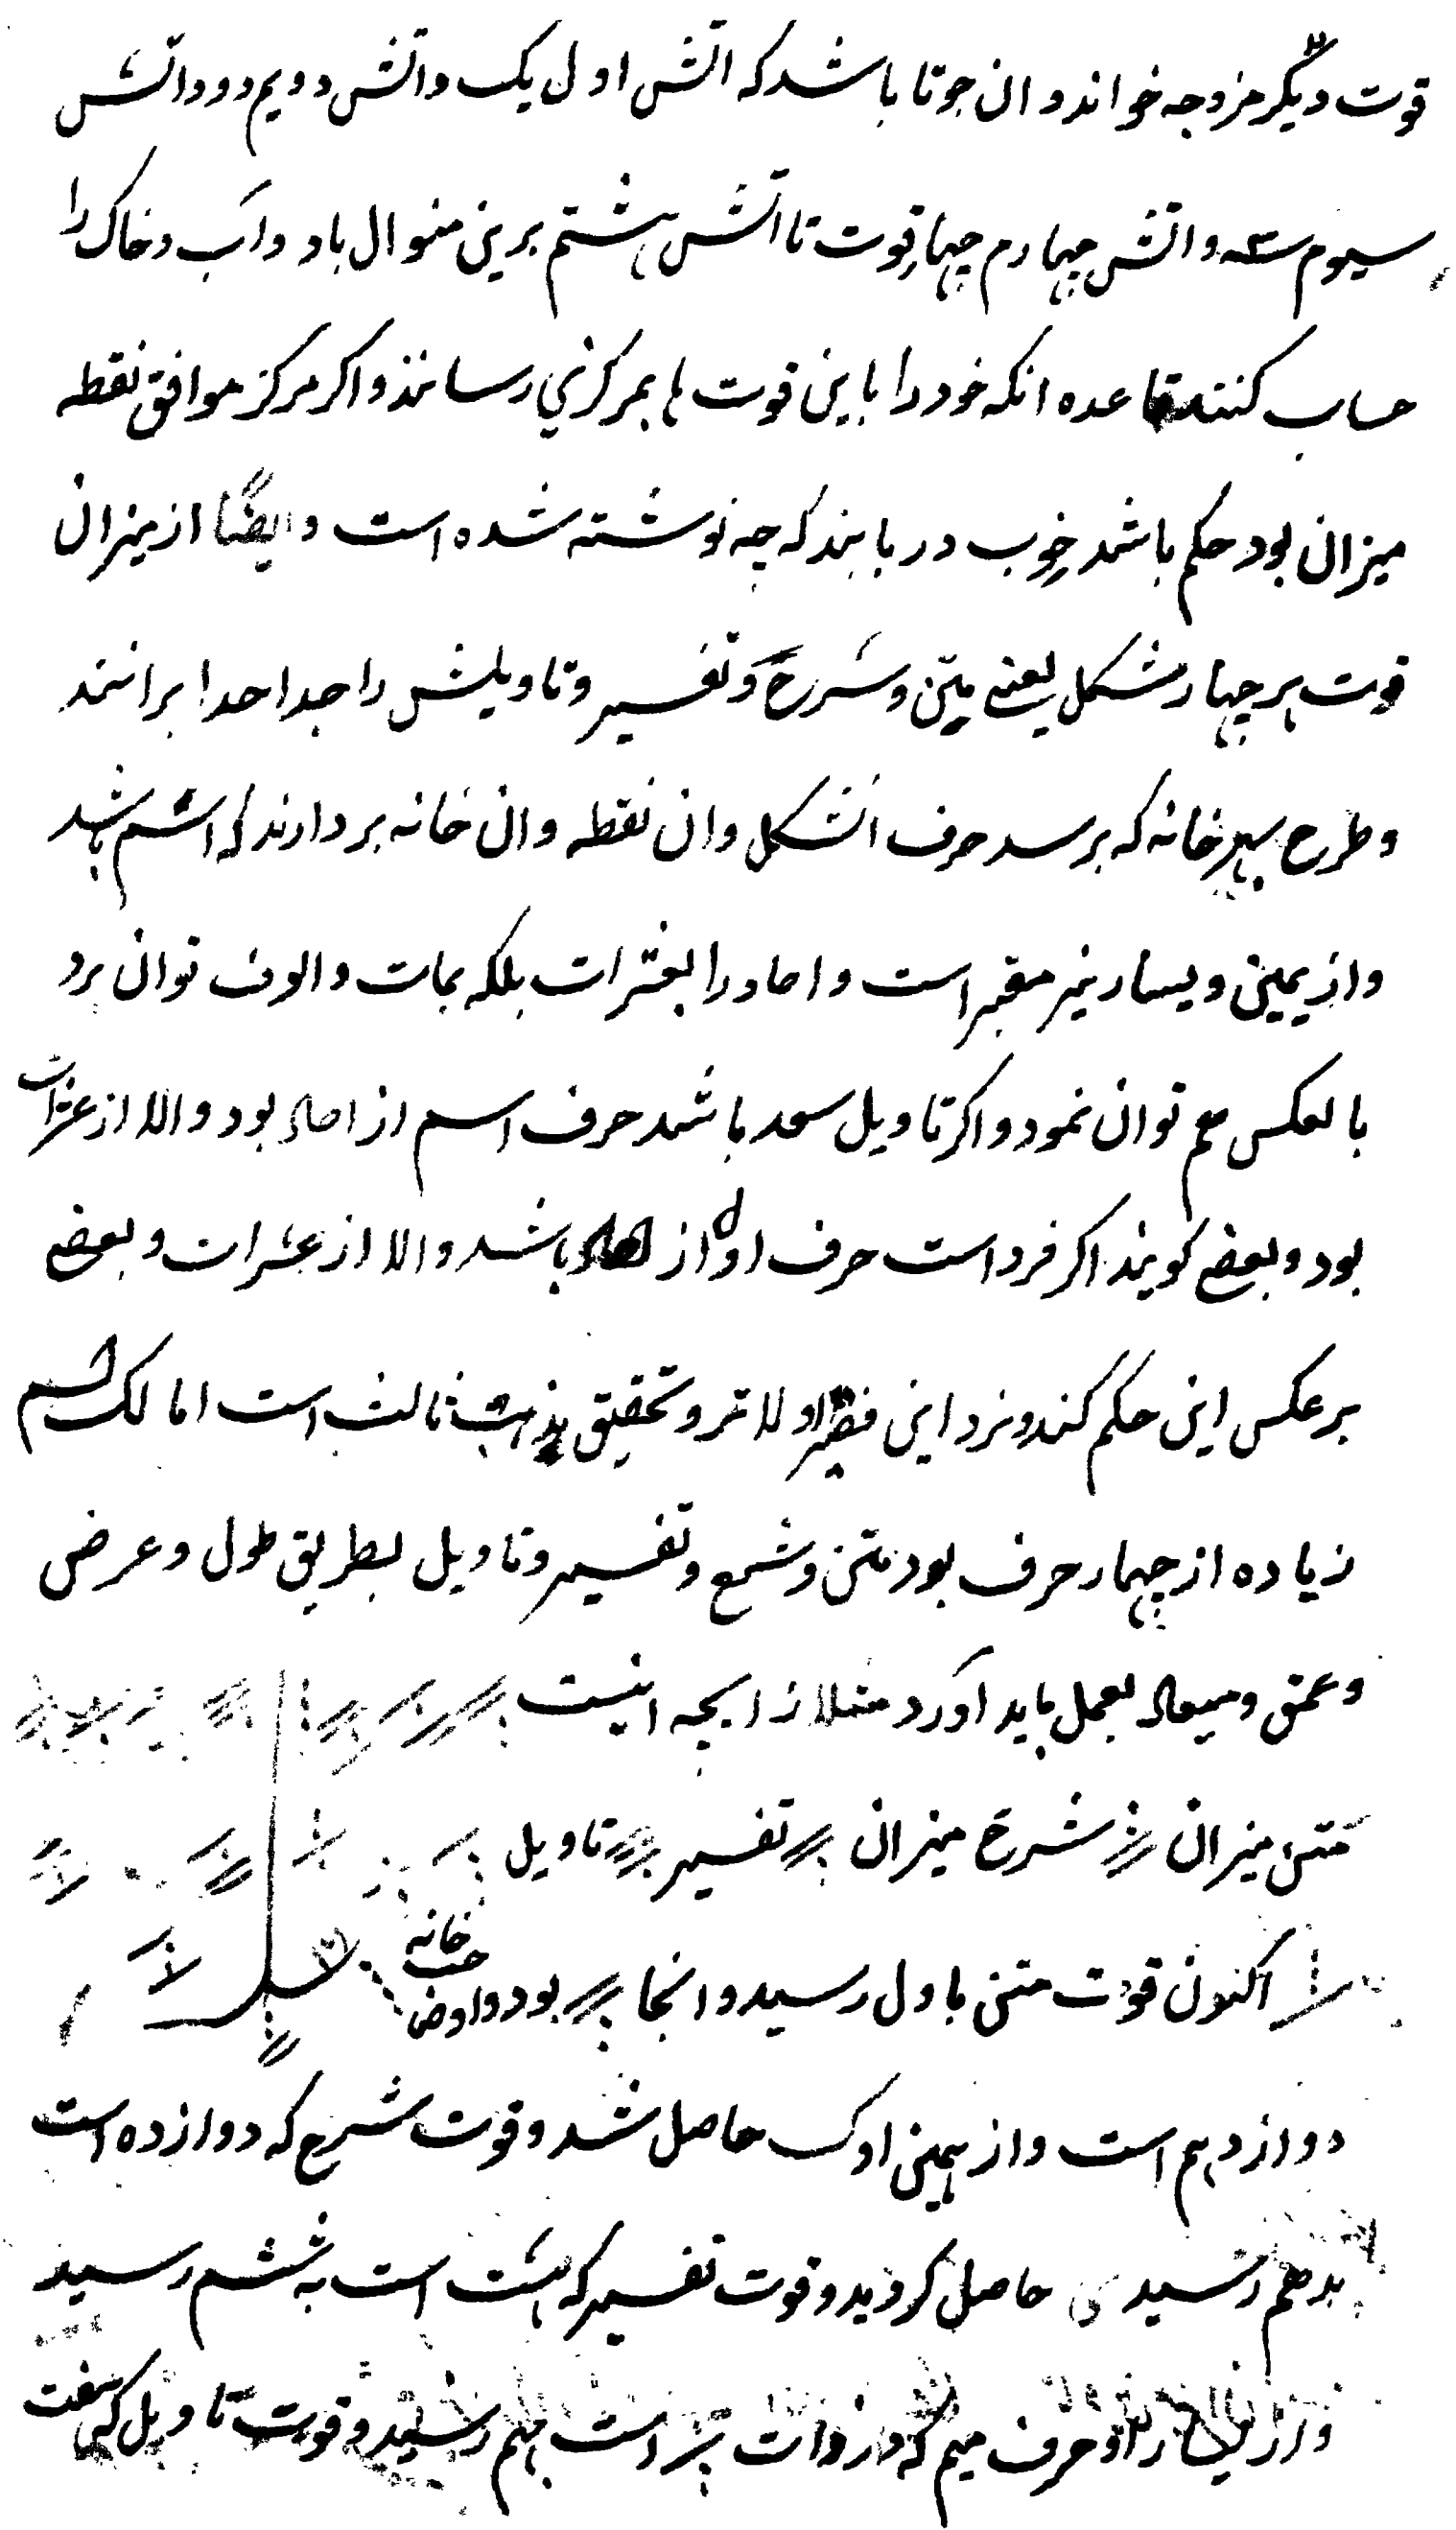 قوت دیگر مزوجه خواند و ان جوتا باشد که اتش اول یک و اتش دویم دو و اتش
سیوم سه و اتش چهارم چهار قوت تا اتش هشتم برین منوال باد و اب و خاک را
حساب کنند قاعده انکه خود را باین قوت ها بمرکزی رسانند و اکر مرکز موافق نقطه
میزان بود حکم باشد خوب دریابند که چه نوشته شده است و ایضا از میزان
قوت هر چهار شکل یعنی متن و شرح و تفسیر و تاویلش را جدا جدا برانند
و طرح بهر خانه که برسد حرف انشکل و ان نقطه و ان خانه بردارند که اسم باشد
و از یمین و یسار نیز معتبر است و احاد را بعشرات بلکه بمات و الوف توان برد
بالعکس هم توان نمود و اکر تاویل سعد باشد حرف اسم از احاد بود و الا از عشرات
بود و بعضی کویند اکر فرد است حرف اول از احاد باشد و الا از عشرات و بعضی
بر عکس این حکم کنند و نزد این فقیر اولاتر و تحقیق مذهب ثالث است اما لک اسم
زیاده از چهار حرف بود متن و شرح و تفسیر و تاویل بطریق طول و عرض
و عمق و میعاد بعمل باید اورد مثلا زایجه اینست
متن میزان شرح میزان تفسیر تاویل
اکنون قوت متن باول رسید و انجا بود و او خانه
دوازدهم است و از همین اوک حاصل شد و قوت شرح که دوازده است
بدهم رسید ی حاصل کردید و قوت تفسیر که هشت است به ششم رسید
و از یسار او حرف میم که در ذات است بهم رسید و قوت تاویل که هفت